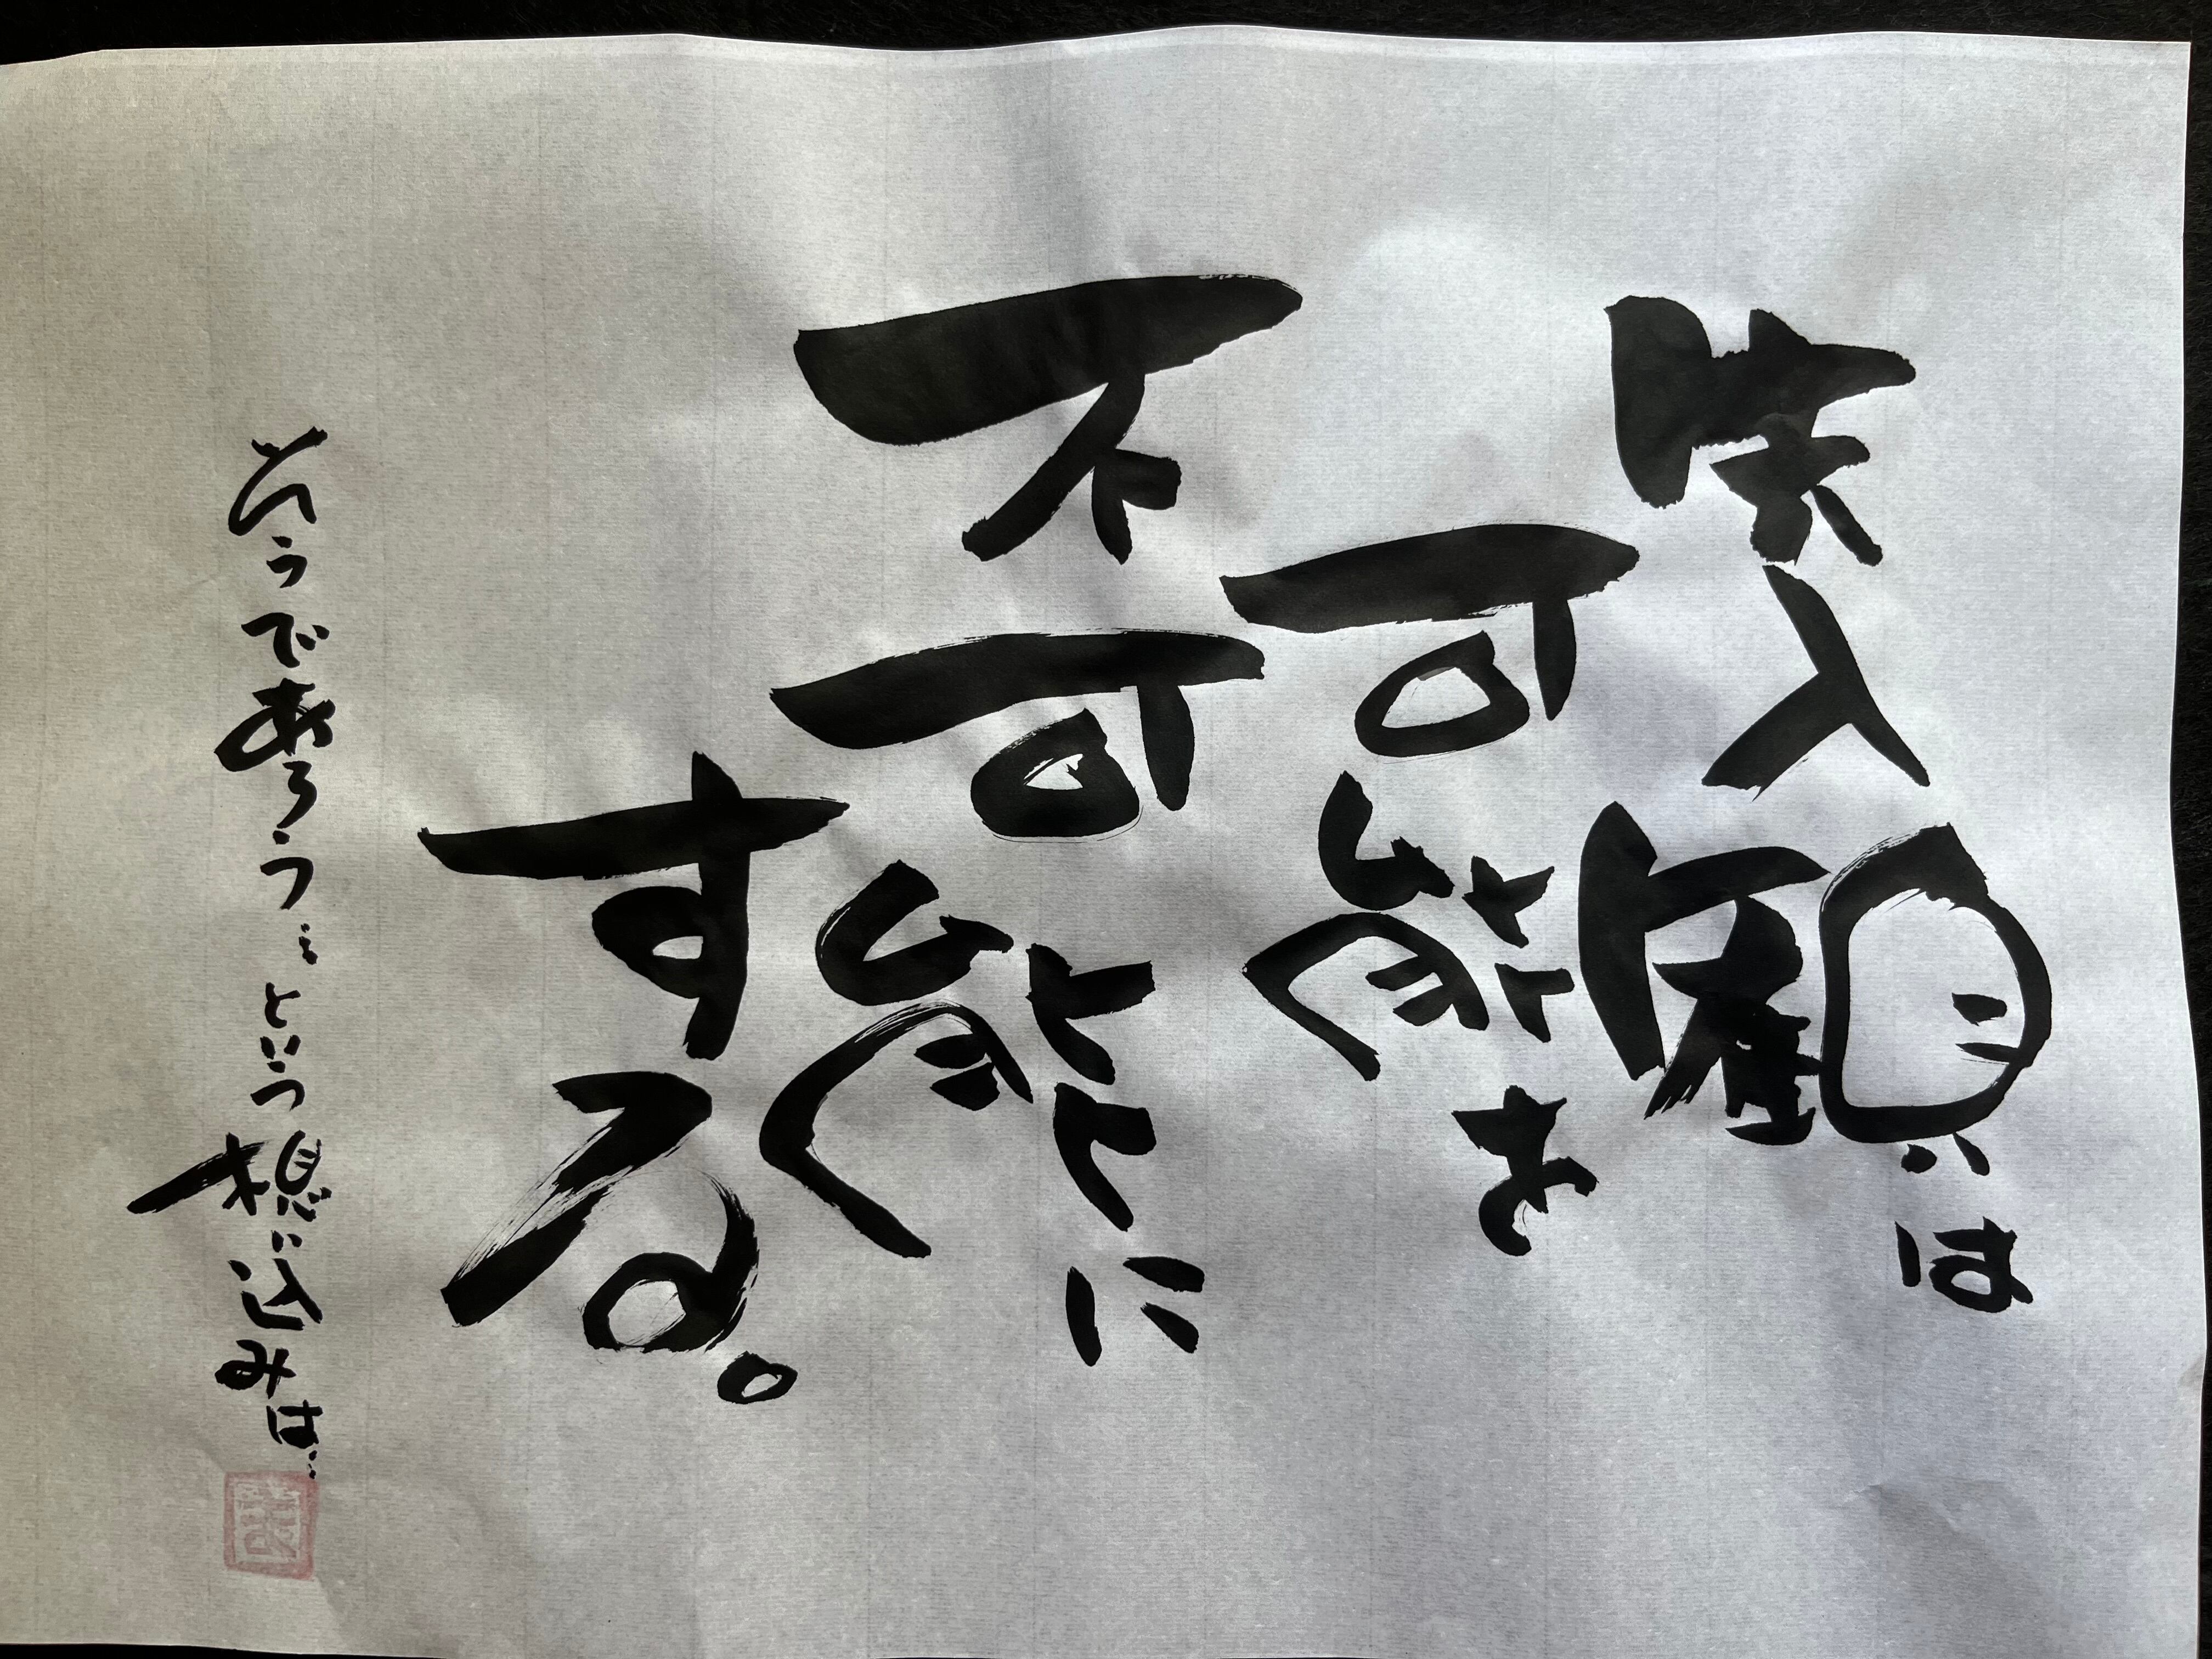 先入観は
可能を
不可能に
する。
そうであろう…という想い込みは…